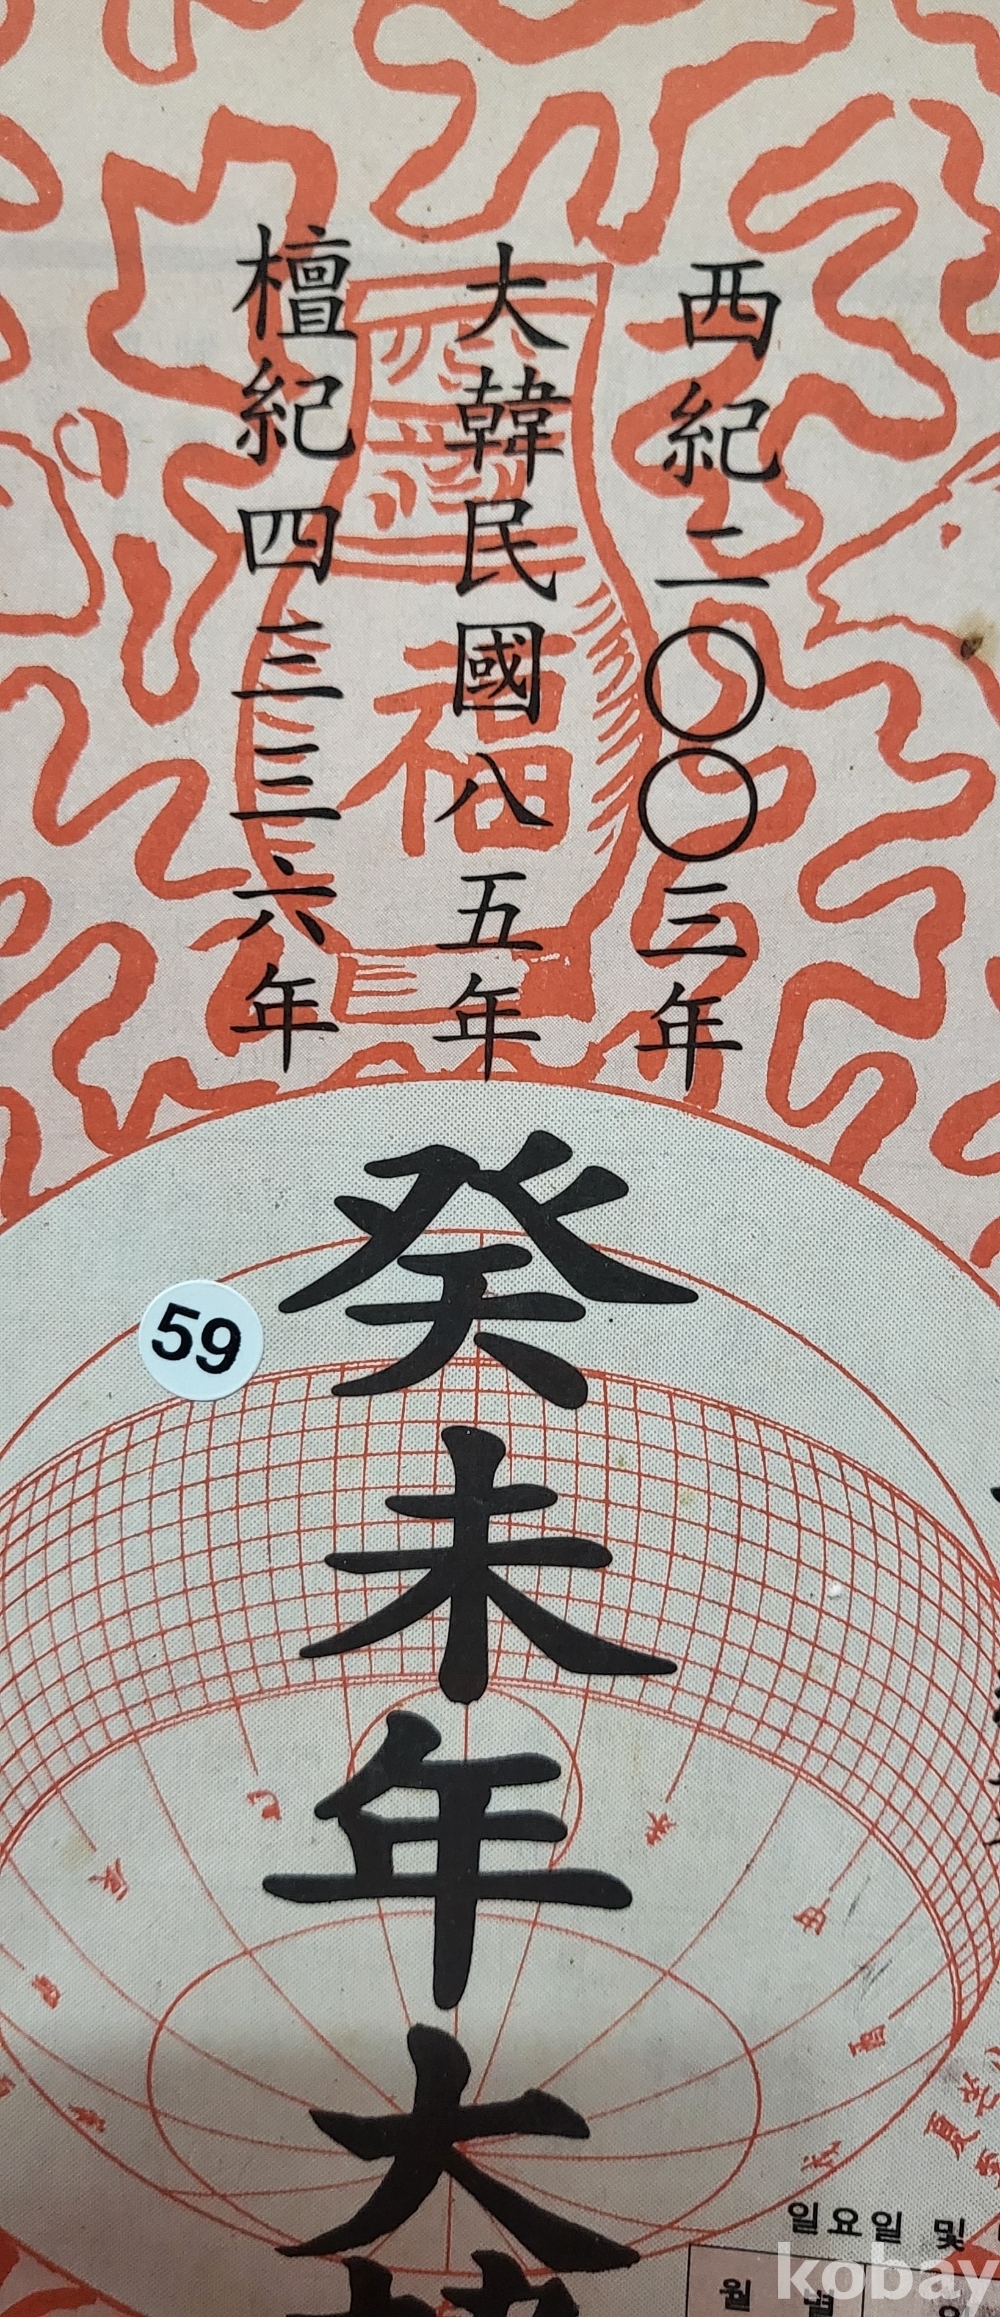 西紀二〇〇三年
大韓民國八五年
檀紀四三三六年
福
癸未年大
59
일요일 및
월 별
kobay